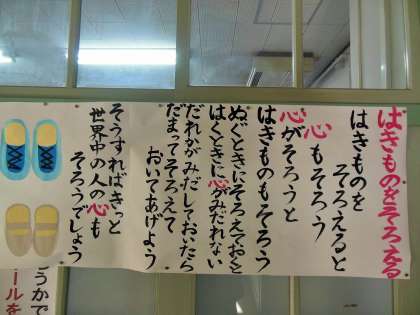 はきものをそろえる
はきものを
そろえると
心もそろう
心がそろうと
はきものもそろう
ぬぐときにそろえておくと
はくときに心がみだれない
だれかがみだしておいたら
だまってそろえて
おいてあげよう
そうすればきっと
世界中の人の心も
そろうでしょう
うかで
ールを